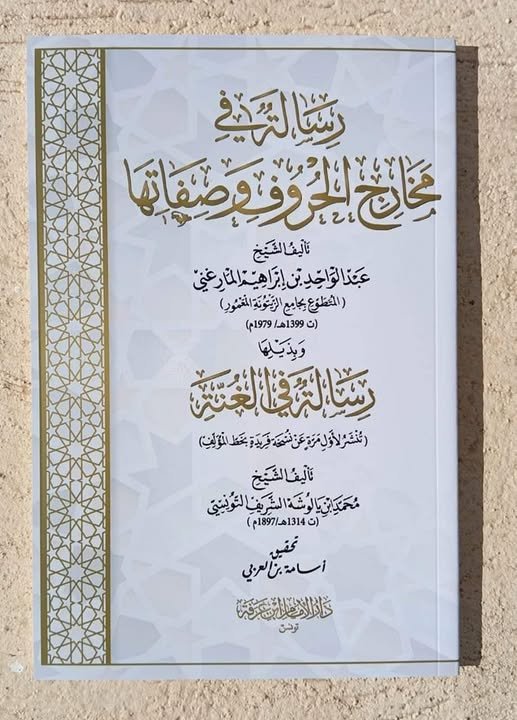 رسالة في
مخارج الحروف وصفاتها
تأليف الشيخ
عبد الواحد بن إبراهيم المارغني
(المتطوع بجامع الزيتونة المعمور)
(ت 1399هـ/ 1979م)
وبذيلها
رسالة في الغنة
(تنشر لأول مرة عن نسخة فريدة بخط المؤلف)
تأليف الشيخ
محمد ابن يالوشه الشريف التونسي
(ت 1314هـ/1897م)
تحقيق
أسامة بن العربي
دار الإمام ابن عرفة
تونس